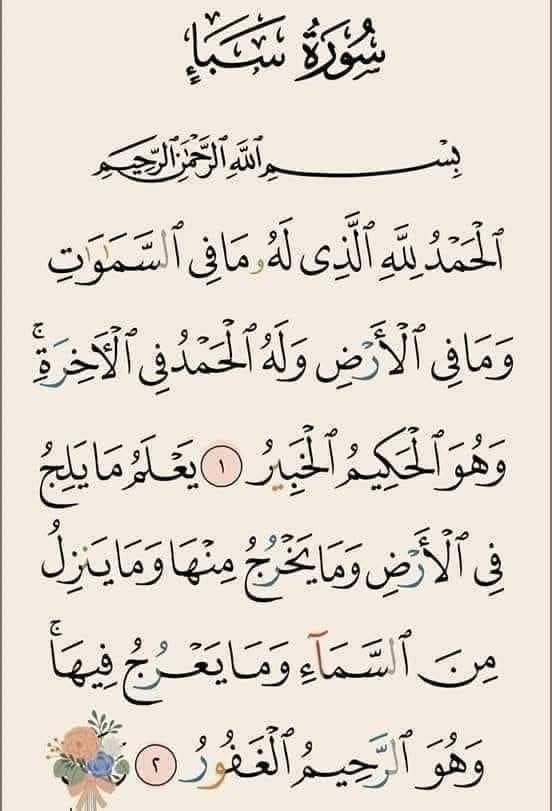 سُورَةُ سَبَإٍ
بِسْمِ ٱللَّهِ ٱلرَّحْمَٰنِ ٱلرَّحِيمِ
ٱلْحَمْدُ لِلَّهِ ٱلَّذِى لَهُۥ مَا فِى ٱلسَّمَٰوَٰتِ
وَمَا فِى ٱلْأَرْضِ وَلَهُ ٱلْحَمْدُ فِى ٱلْءَاخِرَةِ ۚ
وَهُوَ ٱلْحَكِيمُ ٱلْخَبِيرُ ١ يَعْلَمُ مَا يَلِجُ
فِى ٱلْأَرْضِ وَمَا يَخْرُجُ مِنْهَا وَمَا يَنزِلُ
مِنَ ٱلسَّمَآءِ وَمَا يَعْرُجُ فِيهَا ۚ
وَهُوَ ٱلرَّحِيمُ ٱلْغَفُورُ ٢